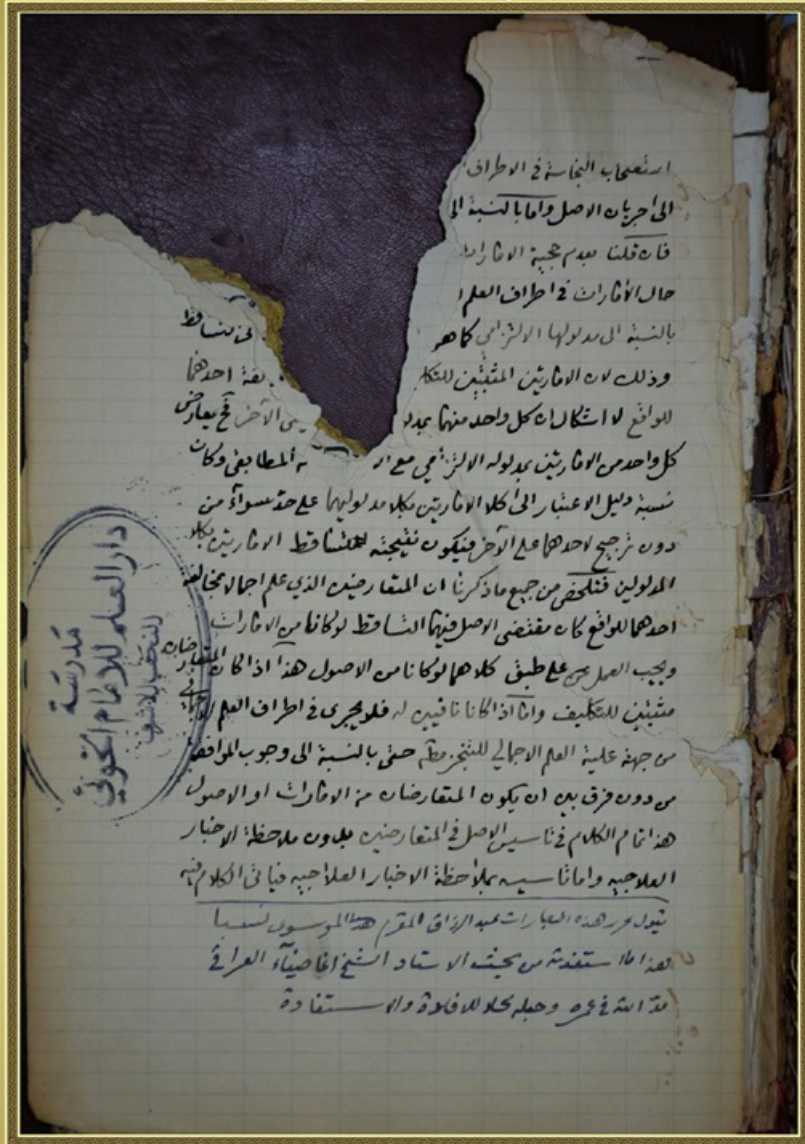 استصحاب النجاسة في الاطراف
الى اجريان الاصل واما بالنسبة الى
فان قلنا بعدم حجية الامارات
حال الأمارات في اطراف العلم ا
بالنسبة الى مدلولها الالتزامي كما هو
وذلك لان الامارتين المثبتين للتكل احدهما
للواقع لا اشكال ان كل واحد منهما بمد الآخر فح يعارض
كل واحد من الامارتين بمدلوله الالتزامي مع ا ـه المطابقي وكان
نسبة دليل الاعتبار الى كلا الامارتين بكلا مدلوليهما على حدّ سواء من
دون ترجيح لاحدهما على الآخر فيكون نتيجته تساقط الامارتين بكلا
المدلولين فتلخص من جميع ما ذكرنا ان المتعارضين الذي علم اجمالا بمخالفة
احدهما للواقع كان مقتضى الاصل فيهما التساقط لو كانا من الامارات
ويجب العمل على طبق كلاهما لو كانا من الاصول هذا اذا كان المتعارضان
مثبتين للتكليف واما اذا كانا نافيين له فلا يجرى في اطراف العلم
من جهة علية العلم الاجمالي للتنجز مطلقا حتى بالنسبة الى وجوب الموافقة
من دون فرق بين ان يكون المتعارضان من الامارات او الاصول
هذا تمام الكلام في تاسيس الاصل في المتعارضين بدون ملاحظة الاخبار
العلاجيه واما تاسيسه بملاحظة الاخبار العلاجيه فيأتى الكلام فيه
يقول محرر هذه العبارات عبد الرزاق المقرم الموسوي نسبا
هذا ما استفدته من بحث الاستاد الشيخ اغا ضياء العراقي
مدّ الله في عمره وجعله محلا للافادة والاستفادة
مدرسة
دار العلم للامام الخوئي
النجف الاشرف